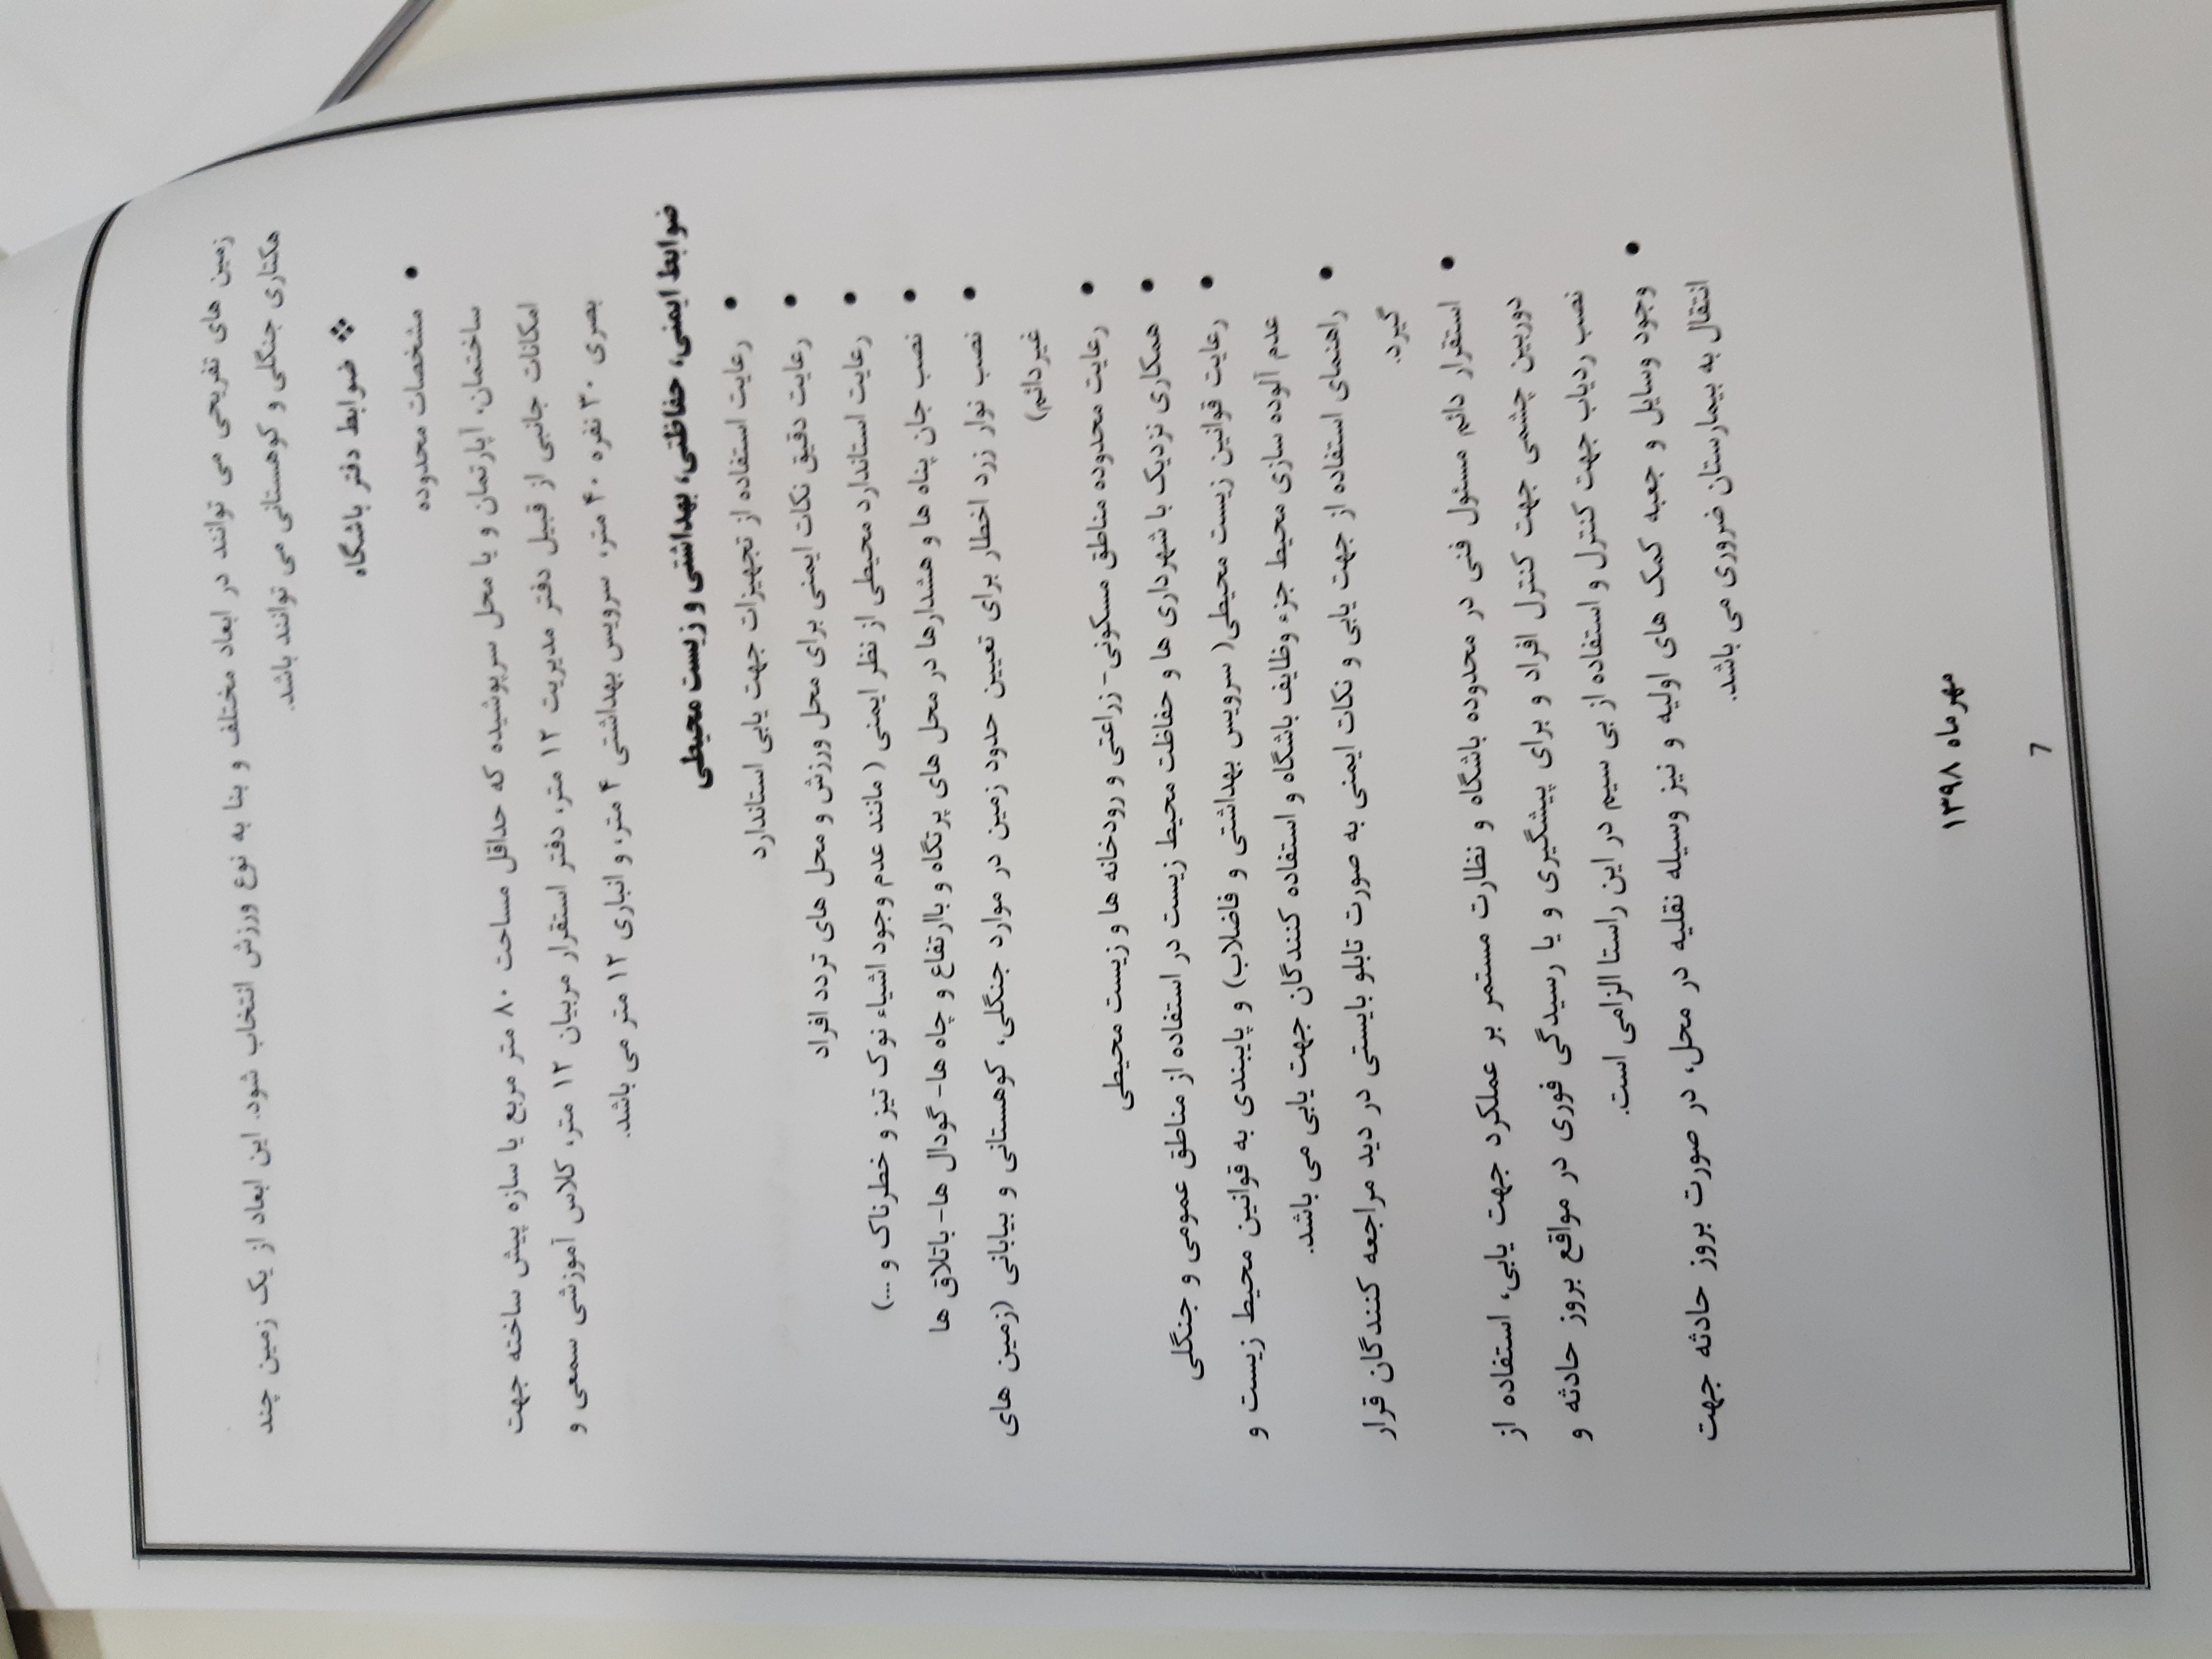 زمین های تفریحی می توانند در ابعاد مختلف و بنا به نوع ورزش انتخاب شود. این ابعاد از یک زمین چند
هکتاری جنگلی و کوهستانی می توانند باشد.
❖ ضوابط دفتر باشگاه
• مشخصات محدوده
ساختمان، آپارتمان و یا محل سرپوشیده که حداقل مساحت ۸۰ متر مربع یا سازه پیش ساخته جهت
امکانات جانبی از قبیل دفتر مدیریت ۱۲ متر، دفتر استقرار مربیان ۱۲ متر، کلاس آموزشی سمعی و
بصری ۳۰ نفره ۴۰ متر، سرویس بهداشتی ۴ متر، و انباری ۱۲ متر می باشد.
ضوابط ایمنی، حفاظتی، بهداشتی و زیست محیطی
• رعایت استفاده از تجهیزات جهت یابی استاندارد
• رعایت دقیق نکات ایمنی برای محل ورزش و محل های تردد افراد
• رعایت استاندارد محیطی از نظر ایمنی ( مانند عدم وجود اشیاء نوک تیز و خطرناک و ....)
• نصب جان پناه ها و هشدارها در محل های پرتگاه و باارتفاع و چاه ها- گودال ها- باتلاق ها
• نصب نوار زرد اخطار برای تعیین حدود زمین در موارد جنگلی، کوهستانی و بیابانی (زمین های
غیردائم)
• رعایت محدوده مناطق مسکونی- زراعتی و رودخانه ها و زیست محیطی
• همکاری نزدیک با شهرداری ها و حفاظت محیط زیست در استفاده از مناطق عمومی و جنگلی
• رعایت قوانین زیست محیطی( سرویس بهداشتی و فاضلاب) و پایبندی به قوانین محیط زیست و
عدم آلوده سازی محیط جزء وظایف باشگاه و استفاده کنندگان جهت یابی می باشد.
• راهنمای استفاده از جهت یابی و نکات ایمنی به صورت تابلو بایستی در دید مراجعه کنندگان قرار
گیرد.
• استقرار دائم مسئول فنی در محدوده باشگاه و نظارت مستمر بر عملکرد جهت یابی، استفاده از
دوربین چشمی جهت کنترل افراد و برای پیشگیری و یا رسیدگی فوری در مواقع بروز حادثه و
نصب ردیاب جهت کنترل و استفاده از بی سیم در این راستا الزامی است.
• وجود وسایل و جعبه کمک های اولیه و نیز وسیله نقلیه در محل، در صورت بروز حادثه جهت
انتقال به بیمارستان ضروری می باشد.
مهر ماه ۱۳۹۸
7